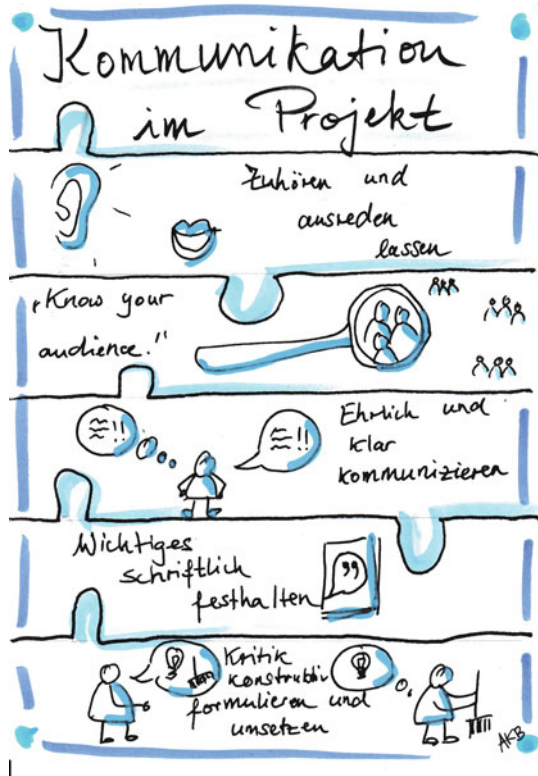 Kommunikation
im Projekt
Zuhören und
ausreden
lassen
„Know your
audience."
Ehrlich und
klar
kommunizieren
Wichtiges
schriftlich
festhalten
Kritik
konstruktiv
formulieren und
umsetzen
AKB